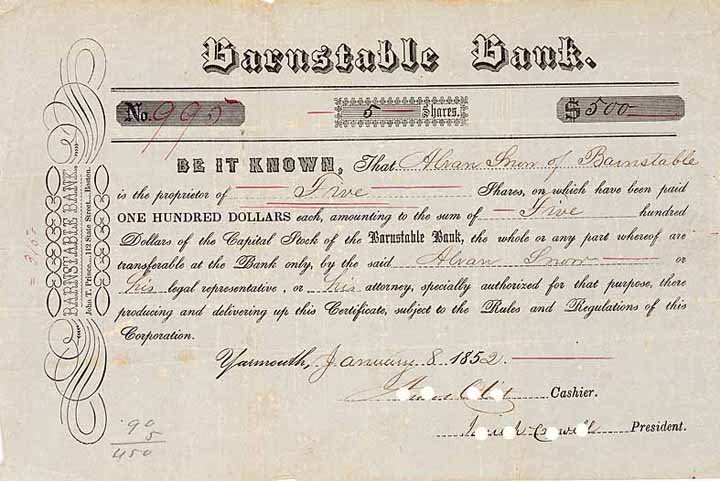 Barnstable Bank.
No. 995 5 Shares. $500
BE IT KNOWN, That Alvan Snow of Barnstable
is the proprietor of Five Shares, on which have been paid
ONE HUNDRED DOLLARS each, amounting to the sum of Five hundred
Dollars of the Capital Stock of the Barnstable Bank, the whole or any part whereof are
transferable at the Bank only, by the said Alvan Snow or
his legal representative, or his attorney, specially authorized for that purpose, there
producing and delivering up this Certificate, subject to the Rules and Regulations of this
Corporation.
Yarmouth, January 8 1852.
Cashier.
President.
BARNSTABLE BANK
John T. Prince—112 State Street—Boston.
90
5
450